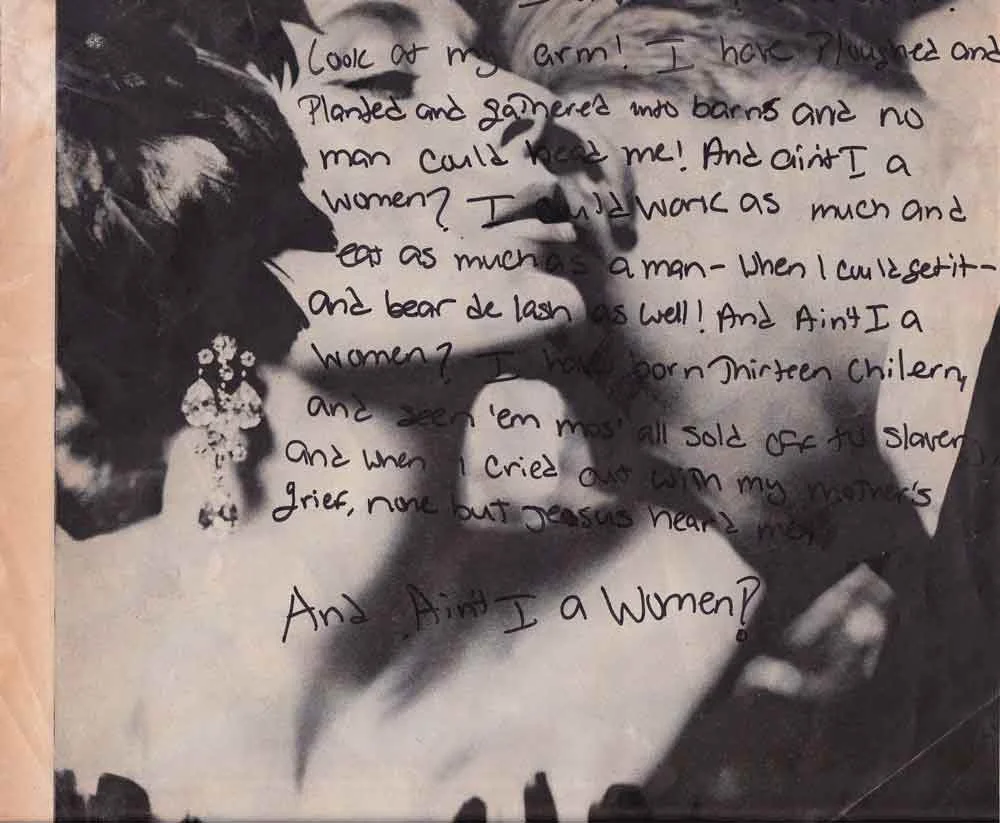 Look at my arm! I have Ploughed and
Planted and gathered into barns and no
man could head me! And ain't I a
women? I could work as much and
eat as much as a man - When I could get it -
and bear de lash as well! And Ain't I a
women? I have born Thirteen Chilern,
and seen 'em mos' all sold off to Slavery,
and when I cried out with my mother's
grief, none but Jeasus heard me,
And Ain't I a Women?